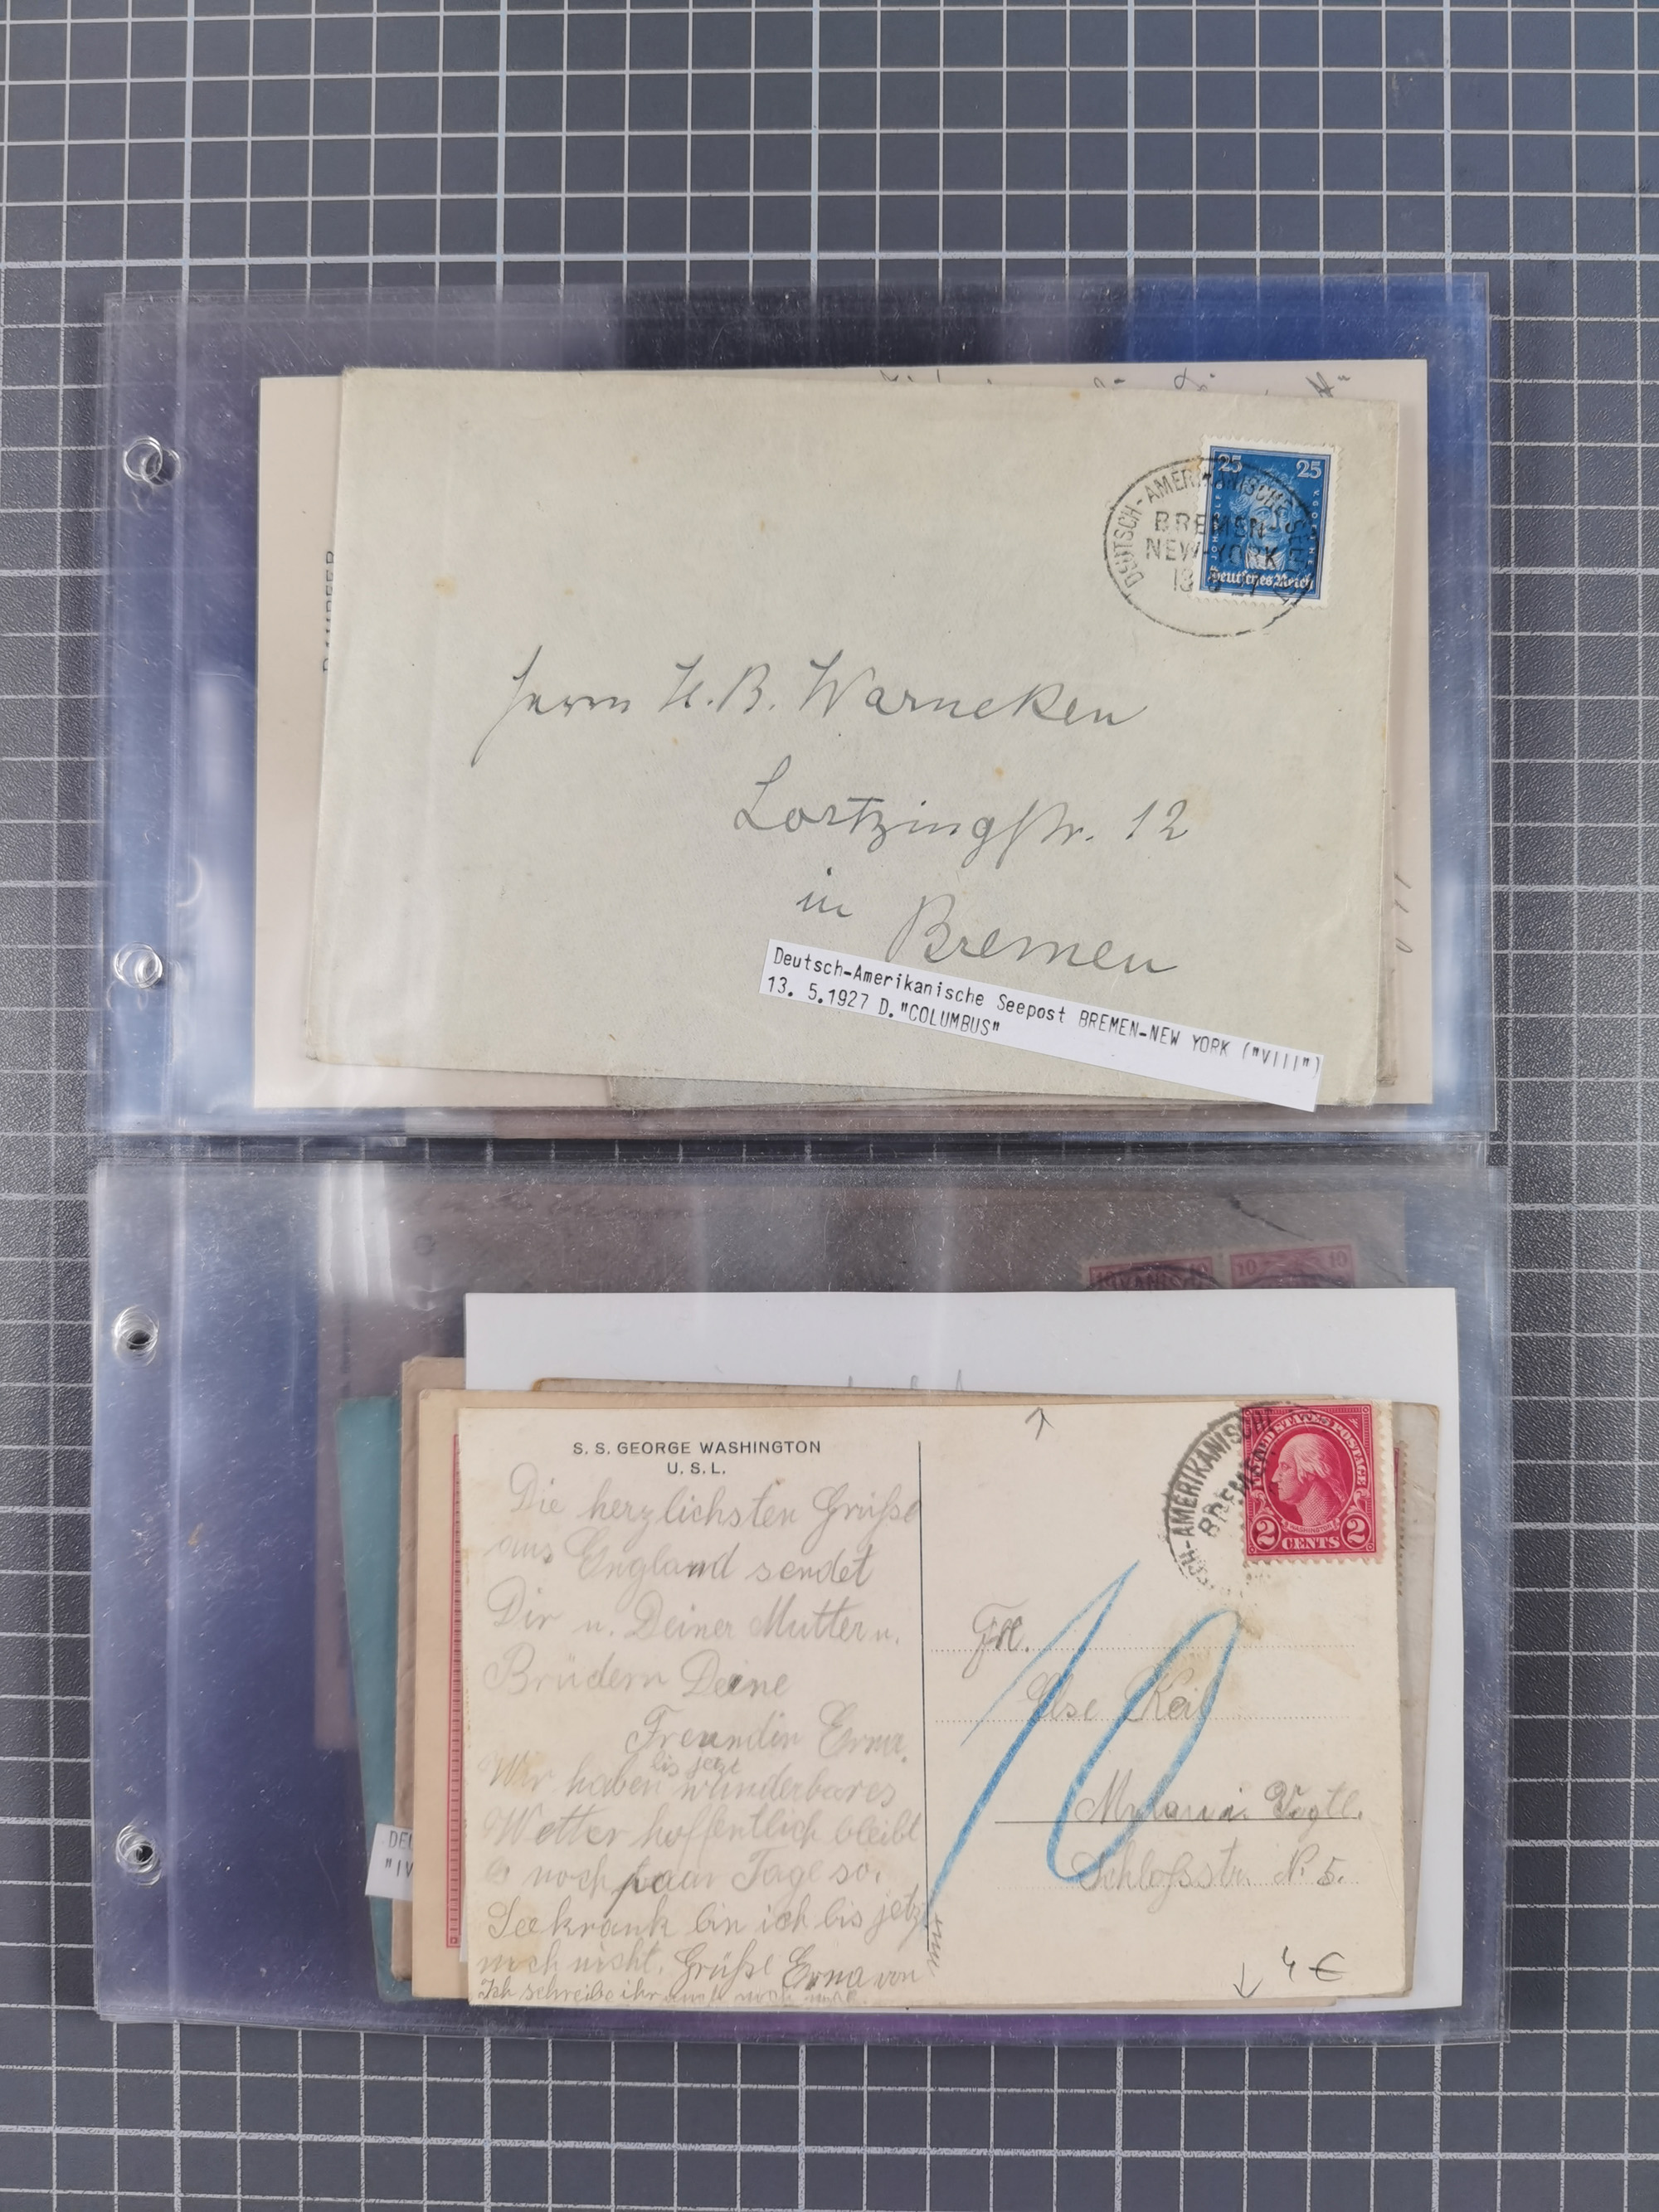 DEUTSCH-AMERIKANISCHE SEEPOST
BREMEN-
NEW-YORK
13 5 27
25 25
Deutsches Reich
Herrn H. B. Warneken
Lortzingstr. 12
in Bremen
Deutsch-Amerikanische Seepost BREMEN-NEW YORK ("VIII")
13. 5.1927 D."COLUMBUS"
10 10 10 10
S. S. GEORGE WASHINGTON
U. S. L.
Die herzlichsten Grüße
aus England sendet
Dir u. Deiner Mutter u.
Brüdern Deine
Freundin Erna.
bis jetzt
Wir haben wunderbares
Wetter hoffentlich bleibt
noch paar Tage so.
Seekrank bin ich bis jetzt
noch nicht. Grüße Erna von
mir
Ich schreibe ihr noch
SCH-AMERIKANISCHE
BREMEN
UNITED STATES POSTAGE
WASHINGTON
2 CENTS 2
10
Frl.
Else Keil
Mylau i. Vogtl.
Schloßstr. N. 5.
4 €
DEU
"IV